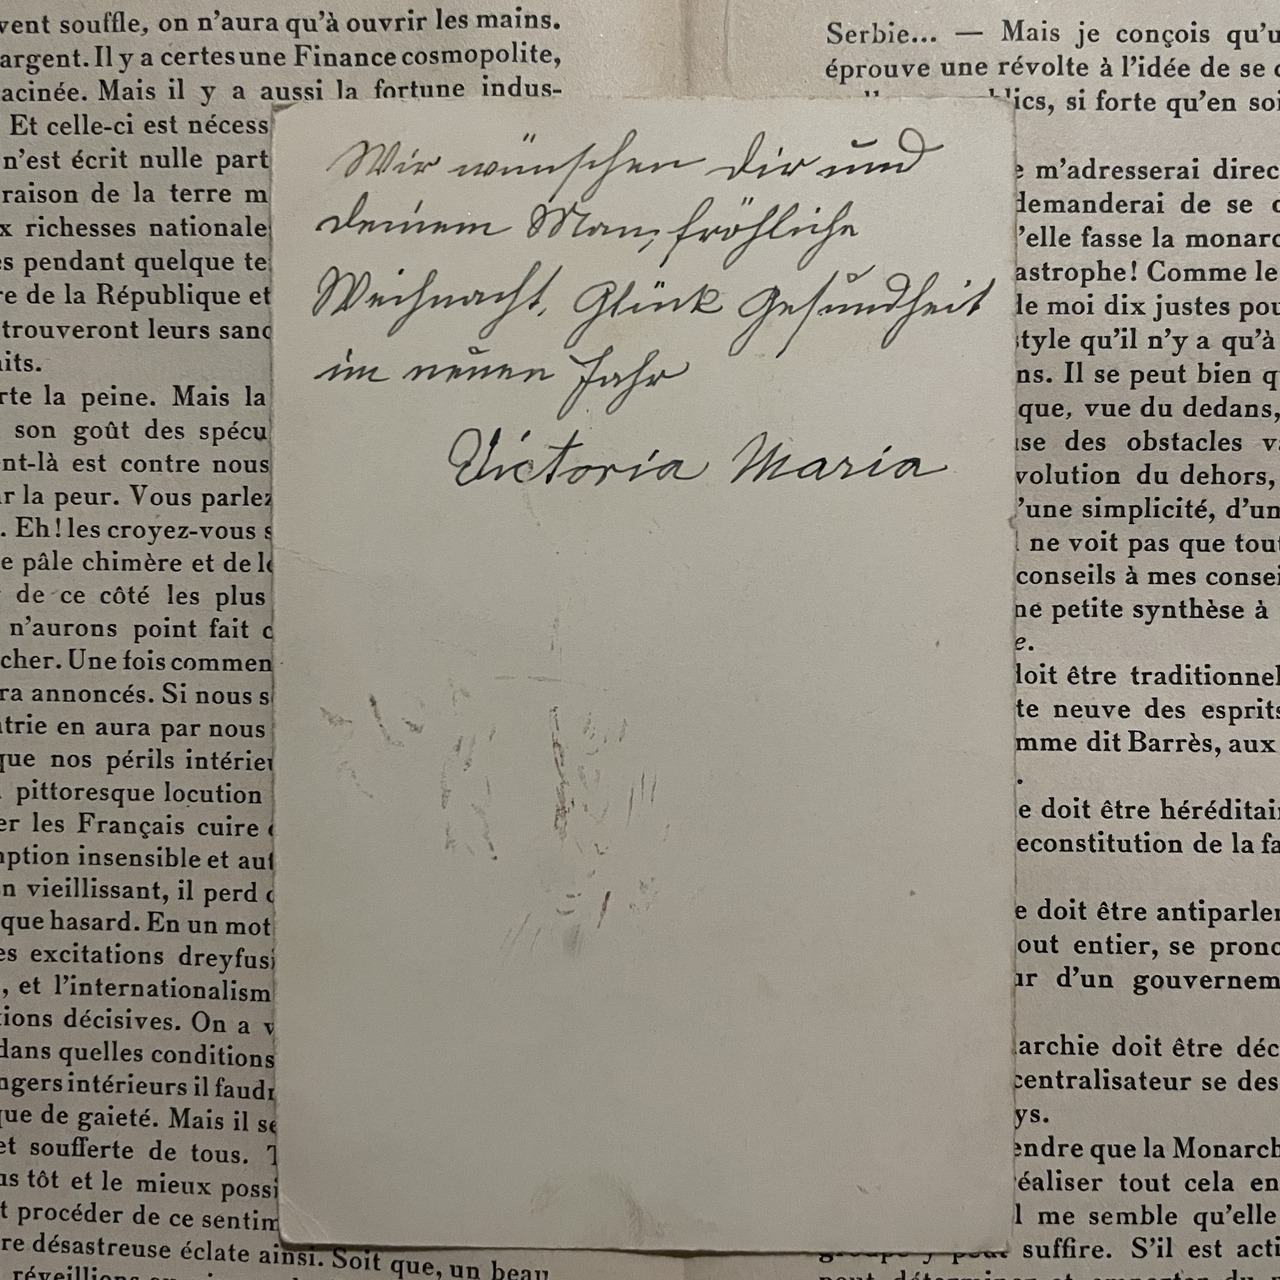 vent souffle, on n'aura qu'à ouvrir les mains.
argent. Il y a certes une Finance cosmopolite,
acinée. Mais il y a aussi la fortune indus-
Et celle-ci est nécess
n'est écrit nulle part
raison de la terre m
x richesses nationale
s pendant quelque te
re de la République et
trouveront leurs sanc
its.
rte la peine. Mais la
son goût des spécu
nt-là est contre nous
r la peur. Vous parlez
. Eh! les croyez-vous s
e pâle chimère et de le
de ce côté les plus
n'aurons point fait c
cher. Une fois commen
ra annoncés. Si nous s
trie en aura par nous
que nos périls intérieu
pittoresque locution
er les Français cuire
ption insensible et aut
n vieillissant, il perd c
que hasard. En un mot
es excitations dreyfusi
, et l'internationalism
tions décisives. On a v
dans quelles conditions
ngers intérieurs il faudr
que de gaieté. Mais il se
et soufferte de tous. T
us tôt et le mieux possi
t procéder de ce sentim
re désastreuse éclate ainsi. Soit que, un beau
réveillions
Wir wünschen Dir und
deinem Man, fröhliche
Weihnacht, Glück Gesundheit
im neuen Jahr
Victoria Maria
Serbie... — Mais je conçois qu'u
éprouve une révolte à l'idée de se c
lics, si forte qu'en soi
e m'adresserai direc
demanderai de se c
'elle fasse la monarc
astrophe! Comme le
le moi dix justes pou
style qu'il n'y a qu'à
ns. Il se peut bien q
que, vue du dedans,
se des obstacles va
volution du dehors,
'une simplicité, d'un
ne voit pas que tout
conseils à mes consei
ne petite synthèse à
e.
doit être traditionnel
te neuve des esprits
mme dit Barrès, aux
.
e doit être héréditair
econstitution de la fa
e doit être antiparler
out entier, se prono
ur d'un gouvernem
archie doit être déc
centralisateur se des
ys.
endre que la Monarch
réaliser tout cela en
l me semble qu'elle
groupe y peut suffire. S'il est acti